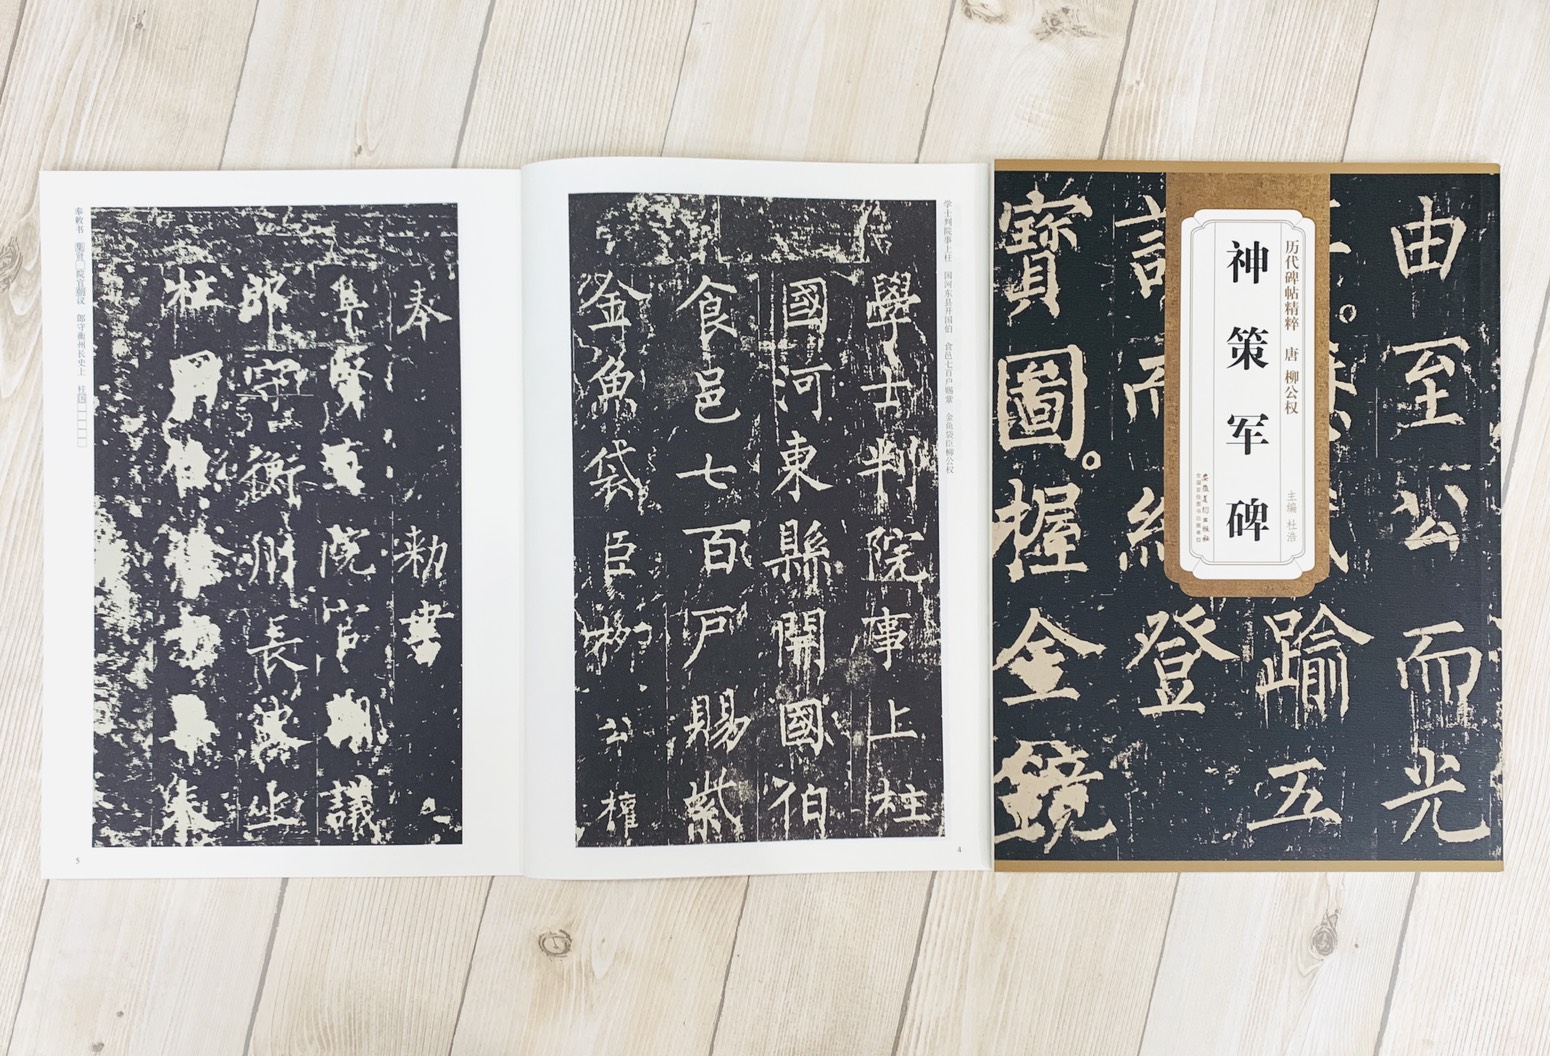 神策军碑
历代碑帖精粹 唐 柳公权
主编 杜浩
由至公而光
踰五
登
寶圖。握金鏡
學士判院事上柱
國河東縣開國伯
食邑七百戶賜紫
金魚袋臣柳公權
学士判院事上柱 国河东县开国伯 食邑七百户赐紫 金鱼袋臣柳公权
4
奉 敕書
集賢 院官朝議
郎守衢州長史上
柱
奉敕书 集贤 院官朝议 郎守衢州长史上 柱国
5